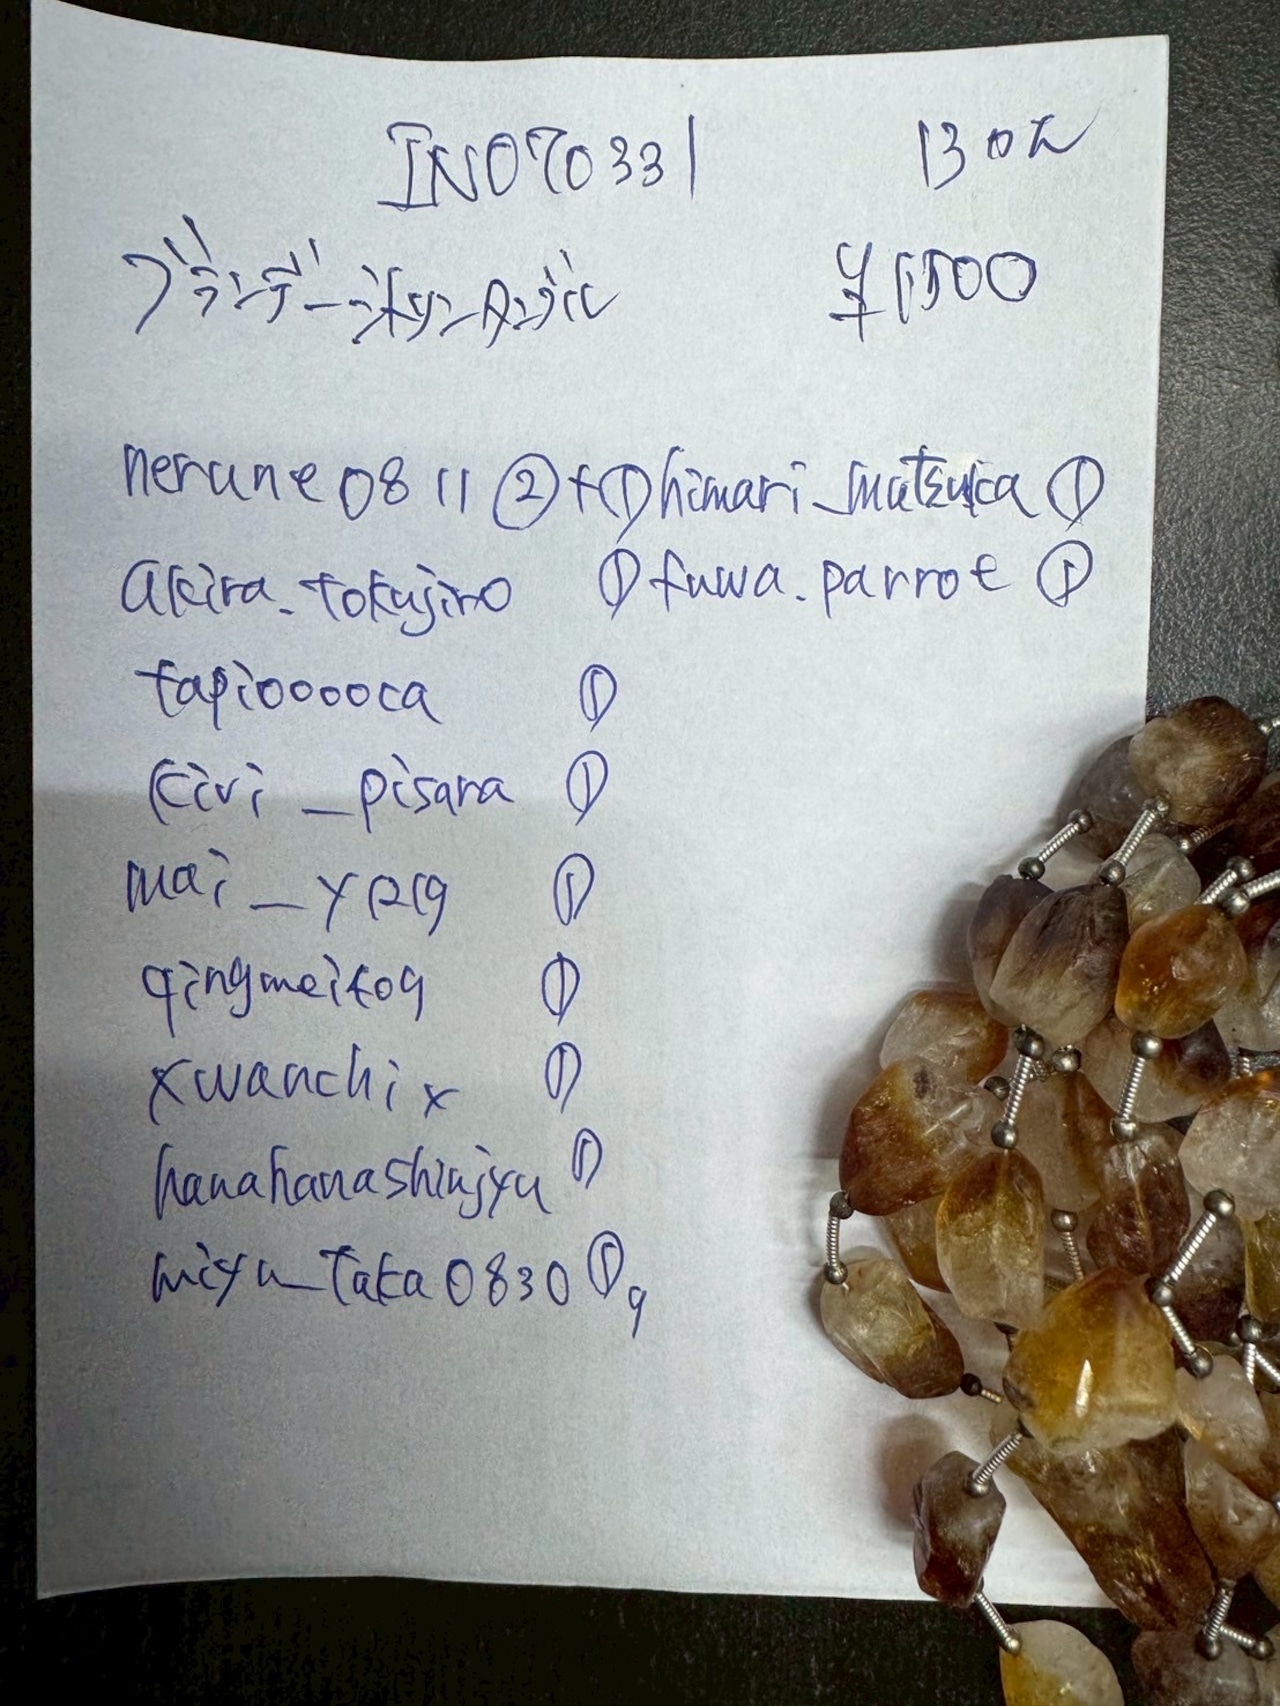 IN070331 130元
ブランデーシトリンタンブル ¥1500
nerune0811 ② + ① himari_matsuka ①
akira.tokujiro ① fuwa.parrot ①
tapiooooca ①
kivi_pisara ①
mai_yng ①
qingmeitog ①
xwanchix ①
hanahanashinjyu ①
miyu_taka0830 ① 9